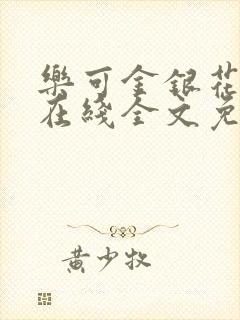 樂可金銀花
在綫全文免
黃少牧